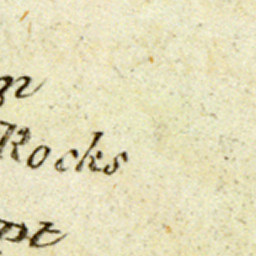 Rocks
pt